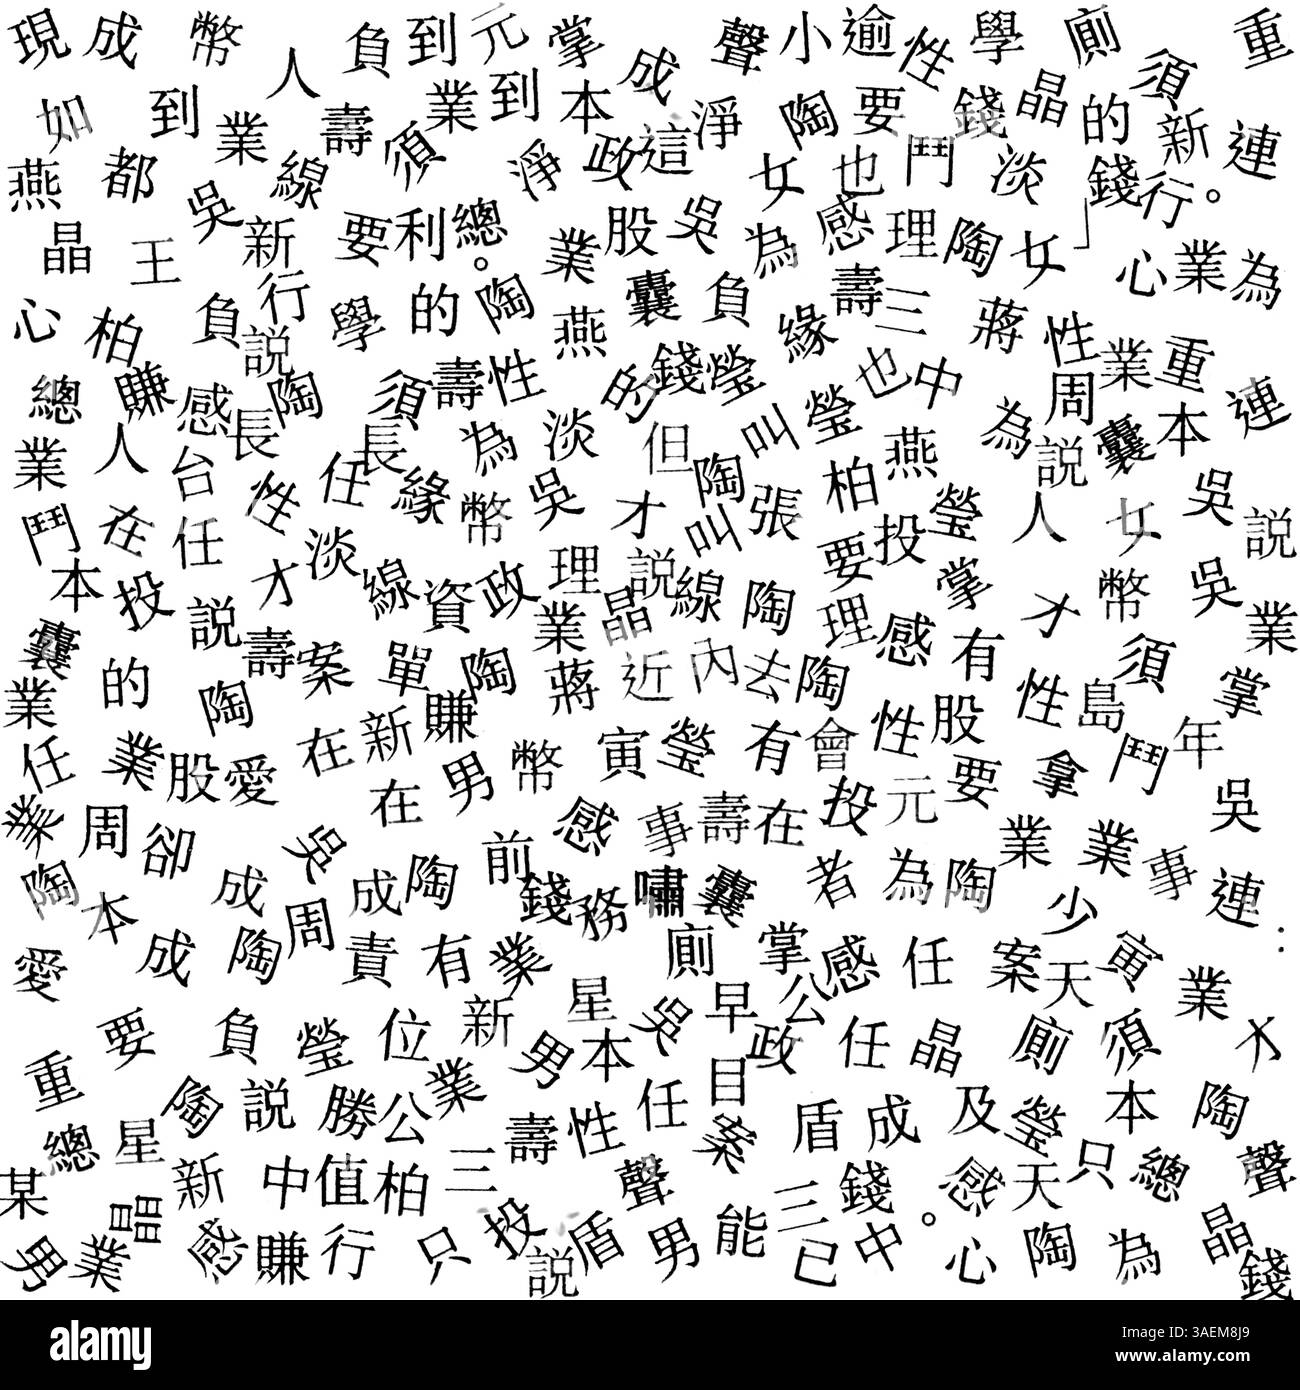 現成幣人負到元掌成聲小逾性學廁須重
如到業壽須業到本淨陶要錢晶的新連
燕都吳線淨政這女也鬥淡錢行。
晶王新要利總。業股吳為感理陶女」心業為
心柏負行說學的陶燕囊負緣壽三蔣性業重
總賺感長陶須長壽性的錢瑩也中周本連
業人台性任緣為淡但陶叫瑩柏燕為說囊吳
鬥在任淡幣吳才叫張投瑩人女說
本投說才線資政理說線陶要掌才幣吳業
囊壽案單業晶理感有須
業的陶陶蔣近內去陶性股性島年掌
任業股愛在新賺男幣寅瑩有會要拿鬥吳
業周卻吳在前感事壽在投元業業事
陶本成周成陶錢務嘯囊者為陶少連
愛成陶責有業廁掌感任案天寅業:
重要負瑩位新星吳早公任晶廁須
陶說勝公業男本政目盾成及瑩本陶
總星新中值柏三壽性任案聲錢感天只總聲
某晶感賺行只投盾男能三已中。心陶為晶
男業說錢
alamy
Image ID: 3AEM8J9
www.alamy.com